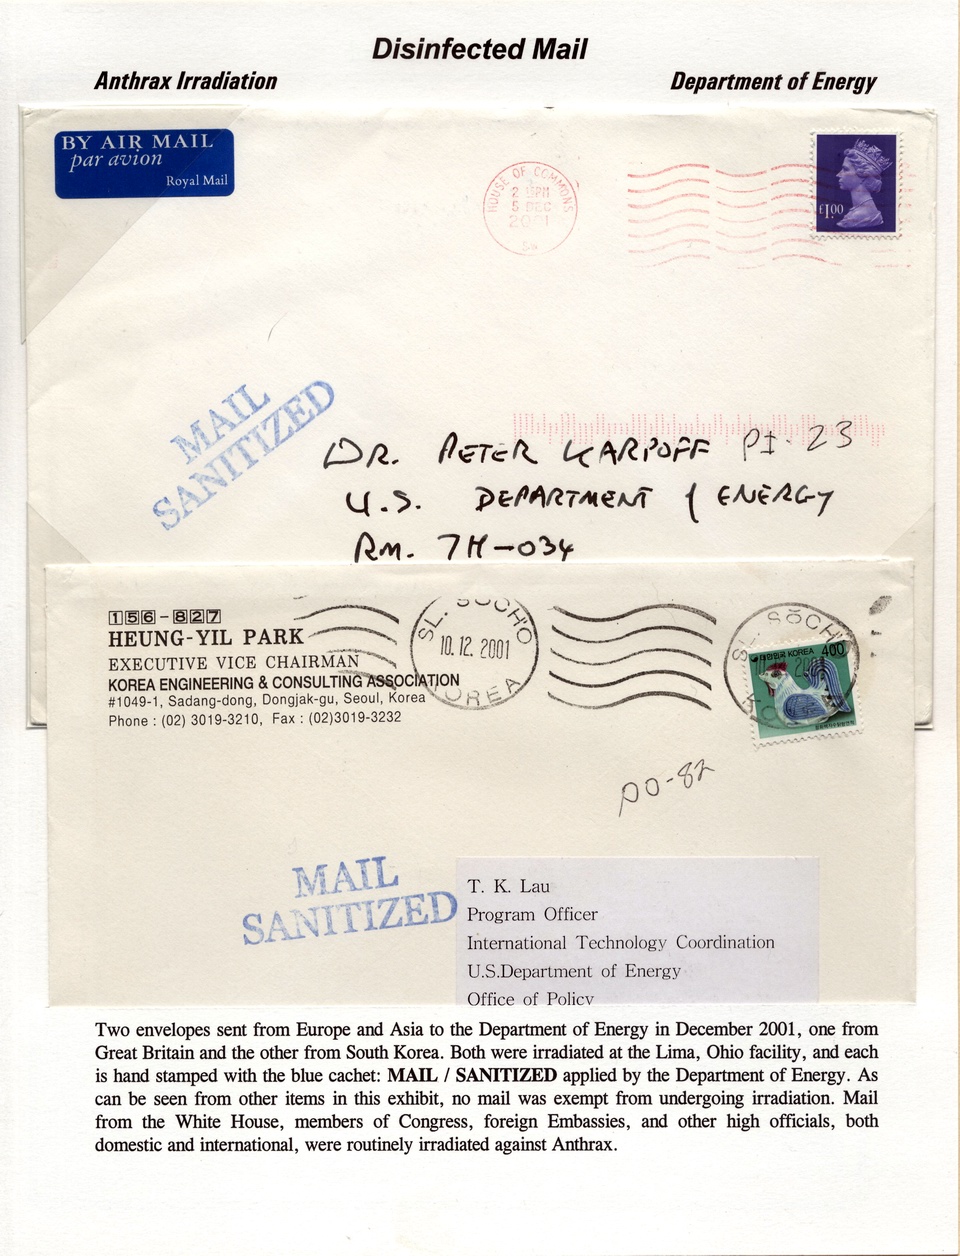 Disinfected Mail
Anthrax Irradiation
Department of Energy
BY AIR MAIL
par avion
Royal Mail
HOUSE OF COMMONS
5 DEC
2001
£1.00
MAIL
SANITIZED
DR. PETER KARPOFF PI-23
U.S. DEPARTMENT of ENERGY
RM. 7H-034
156-827
HEUNG-YIL PARK
EXECUTIVE VICE CHAIRMAN
KOREA ENGINEERING & CONSULTING ASSOCIATION
#1049-1, Sadang-dong, Dongjak-gu, Seoul, Korea
Phone : (02) 3019-3210, Fax : (02)3019-3232
SL. SŎCH'O
10.12.2001
KOREA
SL. SŎCH'O
대한민국 KOREA 400
PO-82
MAIL
SANITIZED
T. K. Lau
Program Officer
International Technology Coordination
U.S.Department of Energy
Office of Policy
Two envelopes sent from Europe and Asia to the Department of Energy in December 2001, one from
Great Britain and the other from South Korea. Both were irradiated at the Lima, Ohio facility, and each
is hand stamped with the blue cachet: MAIL / SANITIZED applied by the Department of Energy. As
can be seen from other items in this exhibit, no mail was exempt from undergoing irradiation. Mail
from the White House, members of Congress, foreign Embassies, and other high officials, both
domestic and international, were routinely irradiated against Anthrax.